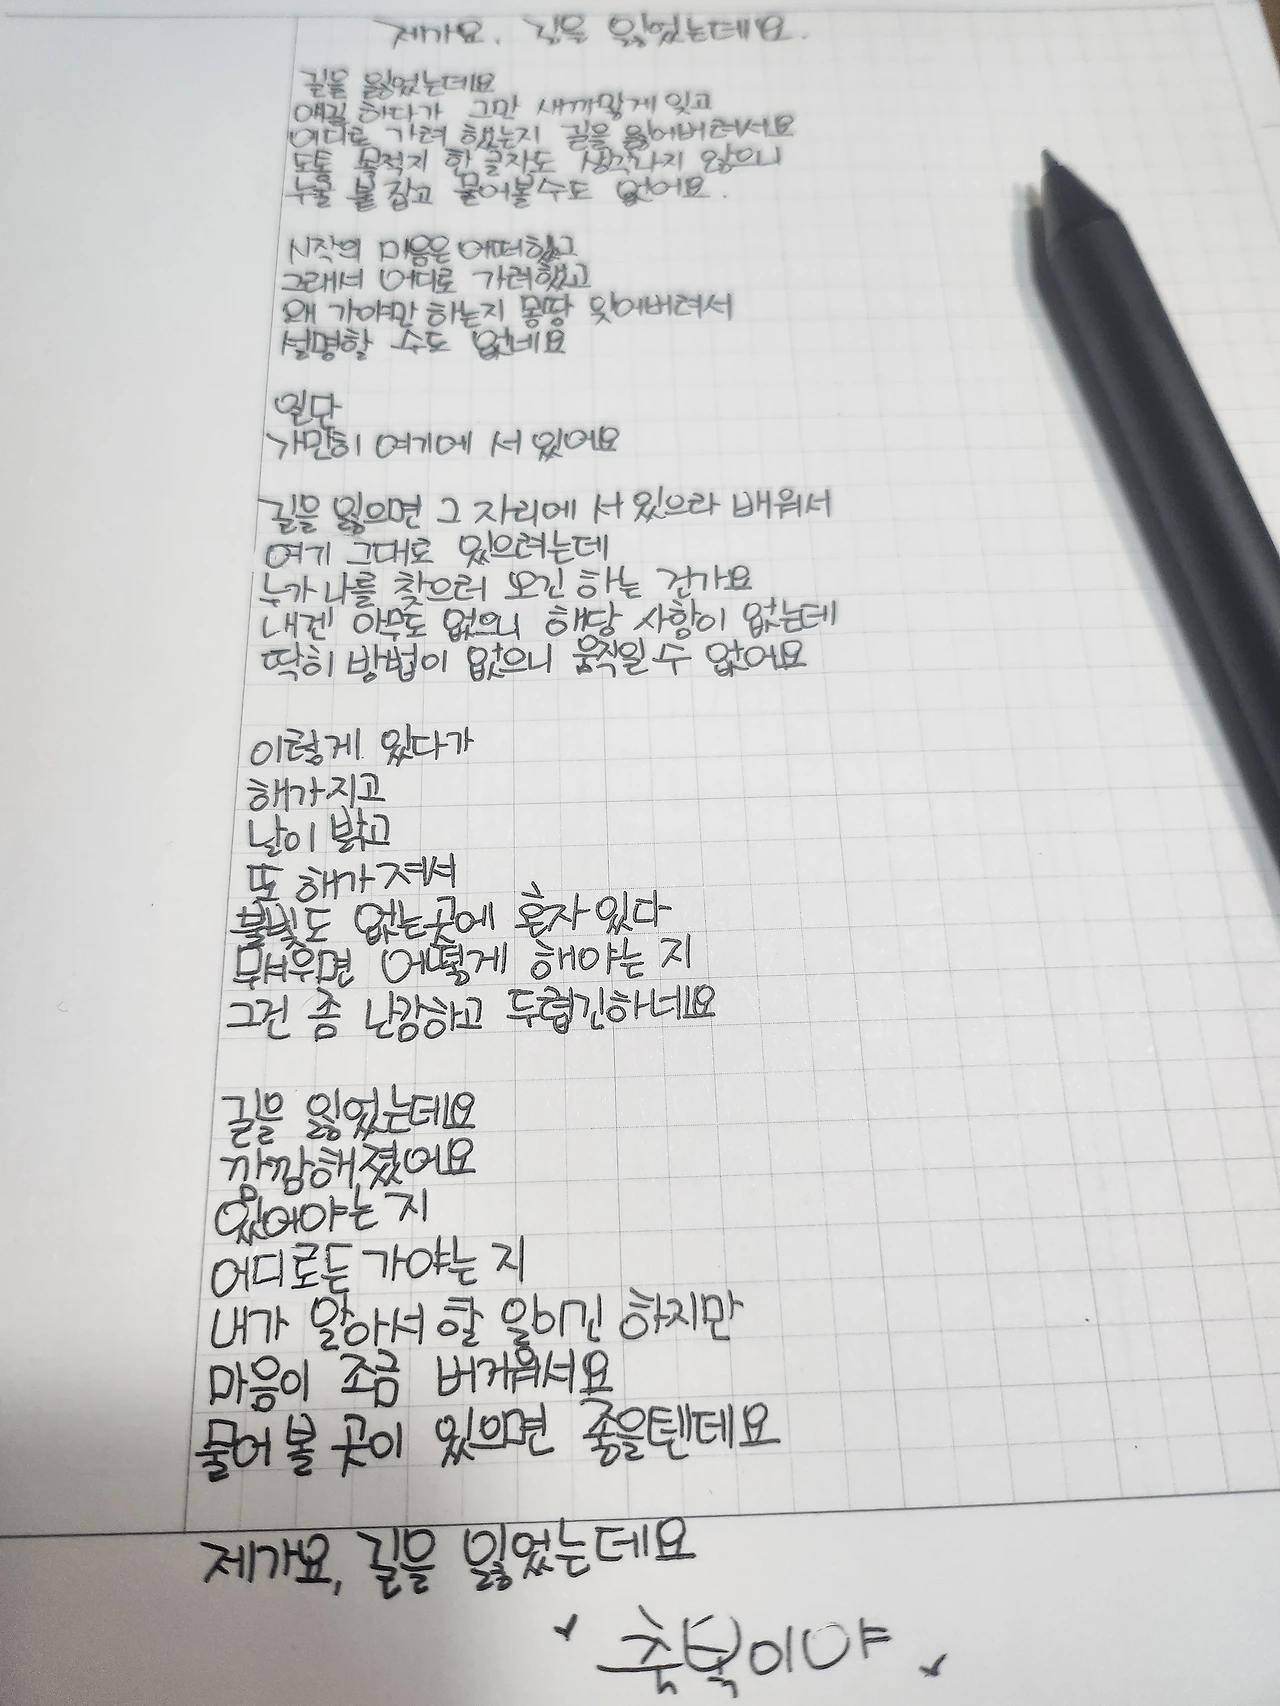 제가요. 길을 잃었는데요.
길을 잃었는데요
얘길 하다가 그만 새까맣게 잊고
어디로 가려 했는지 길을 잃어버려서요
도통 목적지 한 글자도 생각나지 않으니
누굴 붙잡고 물어볼수도 없어요.
시작의 마음은 어떠했고
그래서 어디로 가려했고
왜 가야만 하는지 몽땅 잊어버려서
설명할 수도 없네요
일단
가만히 여기에 서 있어요
길을 잃으면 그 자리에 서 있으라 배워서
여기 그대로 있으려는데
누가 나를 찾으러 오긴 하는 건가요
내겐 아무도 없으니 해당 사항이 없는데
딱히 방법이 없으니 움직일 수 없어요
이렇게 있다가
해가 지고
날이 밝고
또 해가 져서
불빛도 없는곳에 혼자 있다
무서우면 어떻게 해야는 지
그건 좀 난감하고 두렵긴하네요
길을 잃었는데요
깜깜해졌어요
있어야는 지
어디로든 가야는 지
내가 알아서 할 일이긴 하지만
마음이 조금 버거워서요
물어 볼 곳이 있으면 좋을텐데요
제가요, 길을 잃었는데요
축복이야